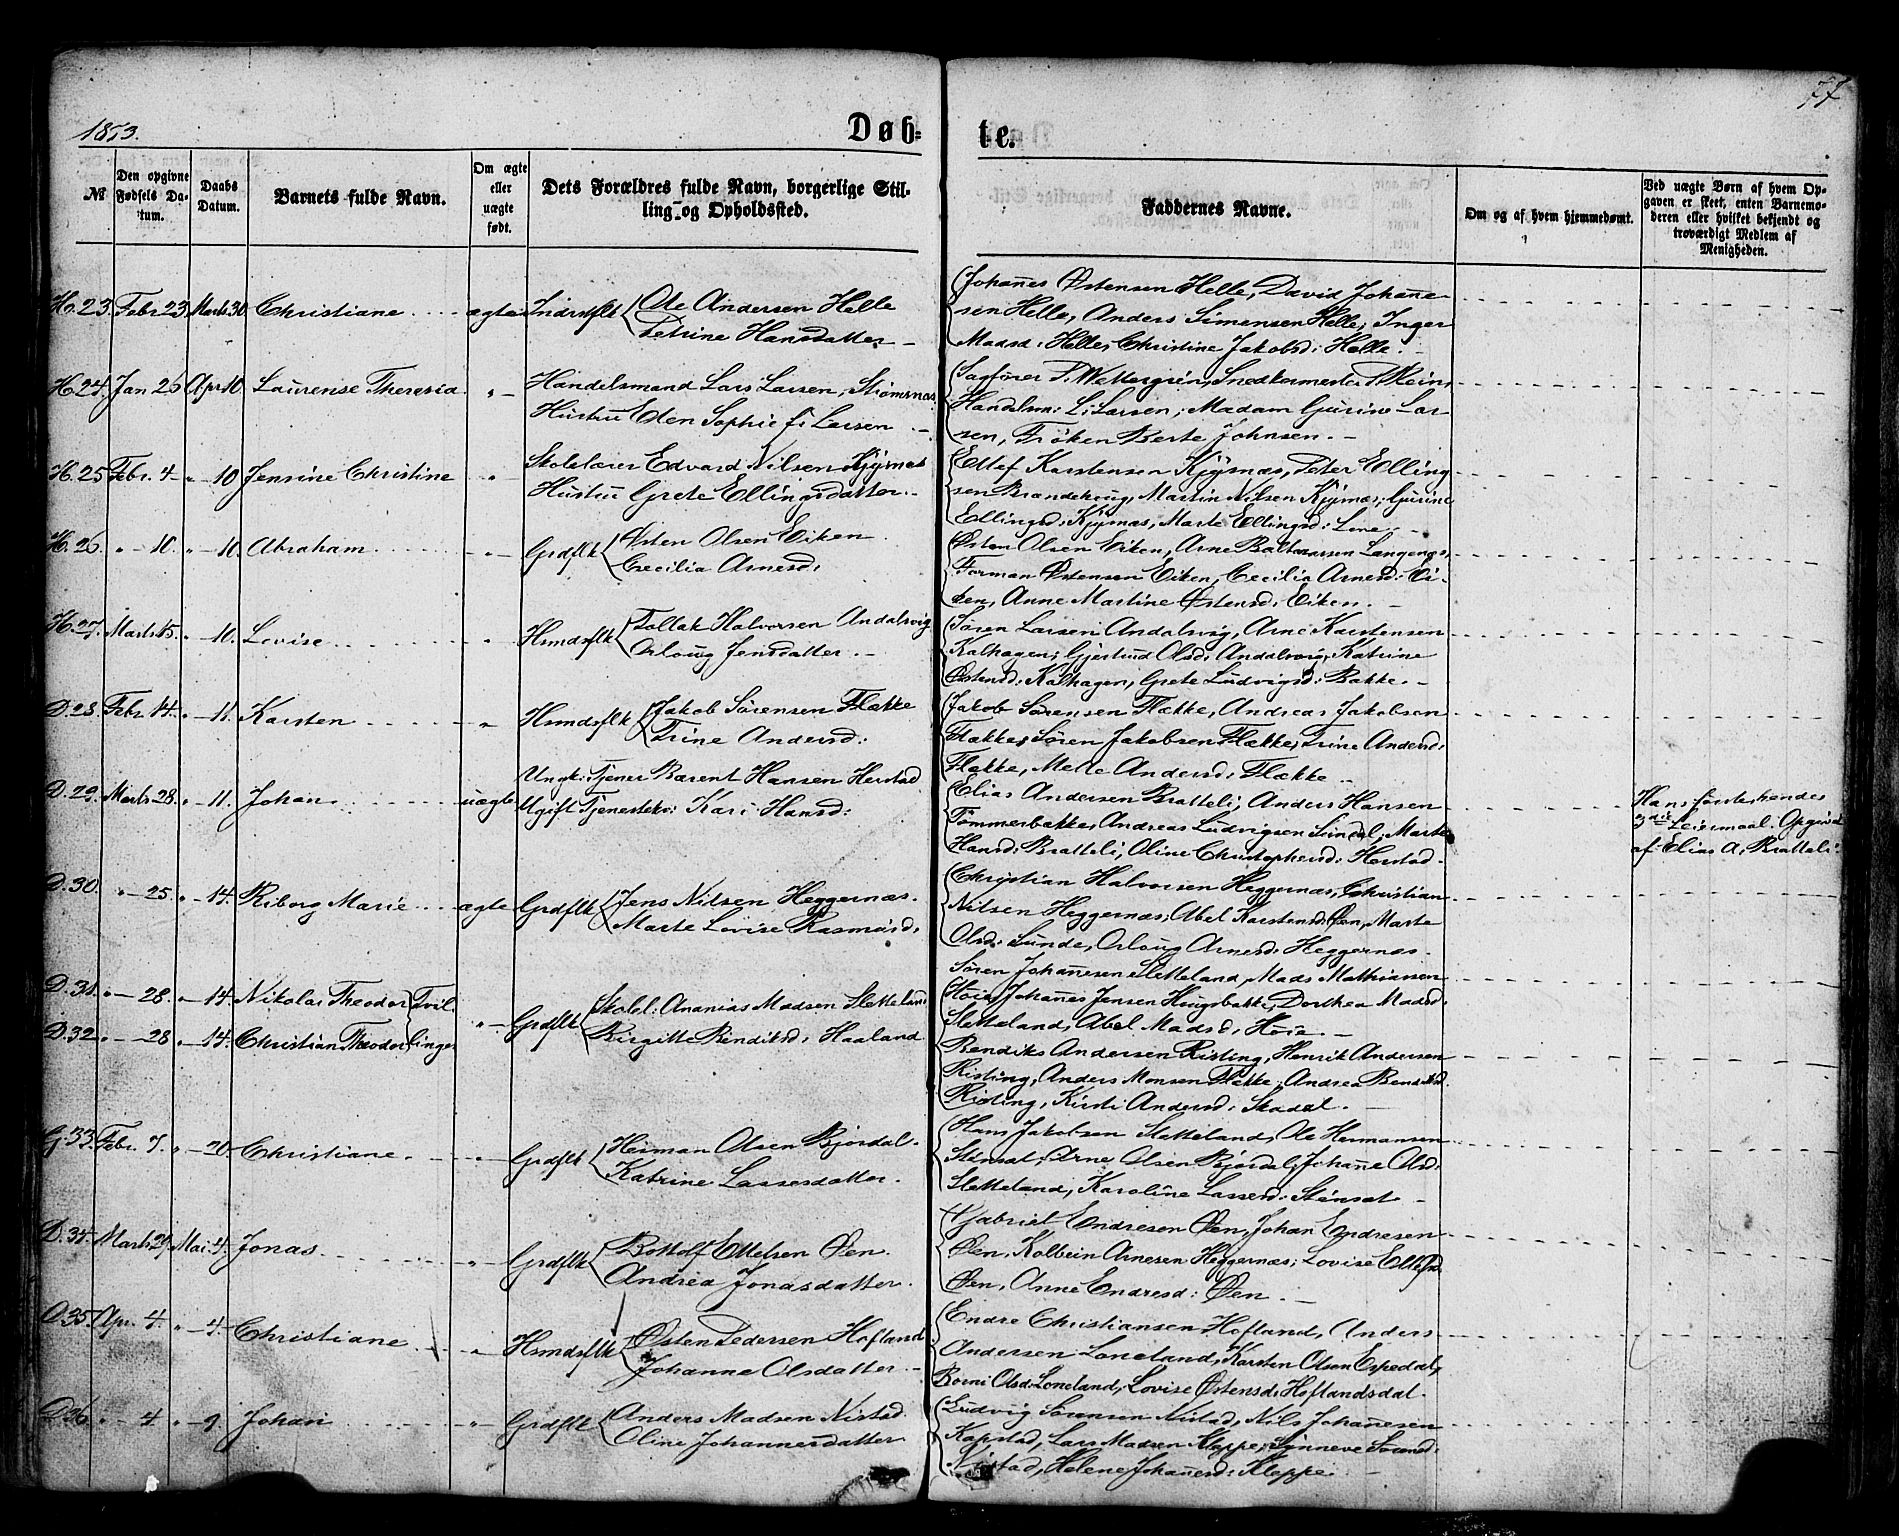 1873.
Døb=
te.
77
№
Den opgivne Fødsels Da-
tum.
Daabs
Datum.
Barnets fulde Navn.
Om ægte
eller
uægte
født.
Dets Forældres fulde Navn, borgerlige Stil-
ling og Opholdssted.
Faddernes Navne.
Om og af hvem hjemmedøbt.
Ved uægte Børn af hvem Op-
gaven er skeet, enten Barnemo-
deren eller hvilket bekjendt og
troværdigt Medlem af
Menigheden.
H. 23. Febr 23. Marts 30. Christiane ægte Indrstflk Ole Andersen Helle
Petrine Hansdatter
Johañes Østensen Helle, David Johañe-
sen Helle, Anders Simensen Helle; Inger
Madsd: Helle, Christine Jakobsd: Helle. -
H. 24. Jan 26 Apr. 10. Laurense Theresia " Handelsmand Lars Larsen, Strømsnæs
Hustru Eden Sophie Larsen
Sagfører P. Wettergrén, Snedkermester P. Stein,
Handelsm: L. Larsen; Madam Gurine Lar-
sen, Frøken Berte Johnsen. -
H. 25 Febr. 4 " 10 Jensine Christine " Skolelærer Edvard Nilsen Kjyrnæs
Hustru Grete Ellingsdatter. -
Ellef Karstensen Kjyrnæs, Peter Elling-
sen Brandehoug, Martin Nilsen Kjyrnæs; Gurine
Ellingsd: Kjyrnæs, Marte Ellingsd: Lone. -
H. 26. " 10. " 10. Abraham " Grdflk Østen Olsen Eiken
Cecilia Arnesd:
Østen Olsen Eiken, Arne Baltzarsen
Torman Østensen Eiken, Cecilia Arnesd: Ei-
ken, Anne Martine Østensd: Eiken. -
H. 27. Marts 15. " 10. Lovise " Hsmdsflk Tollak Halvorsen Andalsvig
Orloug Jensdatter. -
Søren Larsen Andalsvig, Arne Karstensen
Kalhagen; Gjertrud Olsd: Andalsvig, Katrine
Østensd: Kalhagen, Grete Ludvigsd: Bakke. -
D. 28. Febr 14. " 11. Karsten " Hsmdsflk Jakob Sørensen Flække
Trine Andersd:
Jakob Sørensen Flække, Andreas Jakobsen
Flække, Søren Jakobsen Flække, Trine Andersd:
Flække, Mette Andersd: Flække -
D. 29. Marts 28. " 11. Johan uægte Ungk: Tjener Bærent Hansen Herstad
Ugift Tjenestekv: Kari Hansd:
Elias Andersen Bratteli, Anders Hansen
Tømmerbakke, Andreas Ludvigsen Sundal; Marte
Hansd: Bratteli, Oline Christophersd: Herstad.
Hans første hendes
3die Leiermaal. Opgivet
af Elias A. Bratteli.
D. 30. " 25. " 14. Riborg Marie ægte Grdflk Jens Nilsen Heggernæs.
Marte Lovise Rasmusd:
Christian Halvorsen Heggernæs, Christian
Nilsen Heggernæs; Abel Karstensd: Øen, Marte
Olsd: Sunde, Orloug Arnesd: Heggernæs.
D. 31. " 28. " 14. Nikolai Theodor Tvil-
D. 32. " 28 " 14. Christian Theodor linger " Grdflk Skolel: Ananias Madsen Sletteland
Birgitte Bendiksd: Haaland
Søren Johañesen Sletteland, Mads Mathiassen
Høie, Johañes Jensen Hougsbakke, Dorthea Madsd:
Sletteland, Abel Madsd: Høie. -
Bendiks Andersen Risting, Henrik Andersen
Risting, Anders Monsen Flække; Andrea Bendiksd:
Risting, Kirsti Andersd: Skadal. -
G. 33. Febr. 7. " 20. Christiane. " Grdflk Herman Olsen Bjordal.
Katrine Lassesdatter.
Hans Jakobsen Sletteland, Ole Hermansen
Stensæt, Arne Olsen Bjordal, Johañe Olsd:
Sletteland, Karoline Lassesd: Stensæt. -
D. 34. Marts 24. Mai 4. Jonas. " Grdflk Bottolf Ellefsen Øen.
Andrea Jonasdatter.
Gabriel Endresen Øen, Johan Endresen
Øen, Kolbein Arnesen Heggernæs; Lovise Ellefsd:
Øen, Anne Endresd: Øen. -
D. 35. Apr. 4. " 4. Christiane " Hsmdsflk Østen Pedersen Hofland
Johanne Olsdatter. -
Endre Christiansen Hofland, Anders
Andersen Loneland, Karsten Olsen Espedal,
Borni Olsd: Loneland, Lovise Østensd: Hoflandsdal.
D. 36. " 4 " 9. Johan " Grdflk Anders Madsen Nistad.
Oline Johannesdatter
Ludvig Sørensen Nistad, Nils Johañesen
Kapstad, Lars Madsen Kleppe; Synneve
Nistad, Helene Johañesd: Kleppe. -